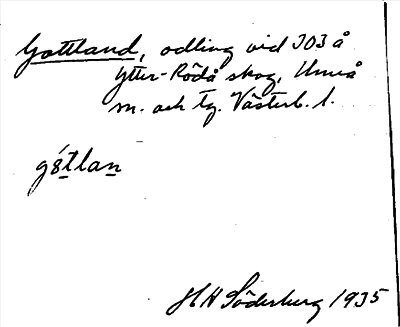 Gottland, odling vid 303 å
Ytter-Rödå skog, Umeå
m. och tg. Västerb. l.
gȣ́tlan
H H Söderberg 1935